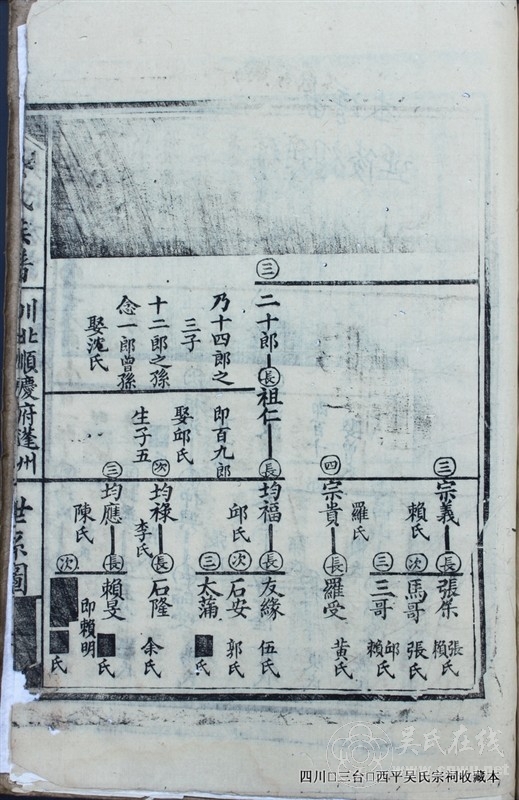 ㊂宗義
㊤長張保
張氏
賴氏
賴氏
次馬哥
張氏
三三哥
邱氏
賴氏
羅氏
四宗貴
長羅受
黃氏
三二十郎
長祖仁
長均福
長友緣
伍氏
邱氏
次石安
郭氏
三太蒲
氏
乃十四郎之
三子
即百九郎
十二郎之孫
念一郎曾孫
娶沈氏
娶邱氏
生子五
次均祿
長石隆
余氏
李氏
三均應
長賴旻
即賴明
氏
陳氏
次
氏
氏族譜
川北順慶府蓬州
世系圖
吴氏在线
四川□三台□西平吴氏宗祠收藏本